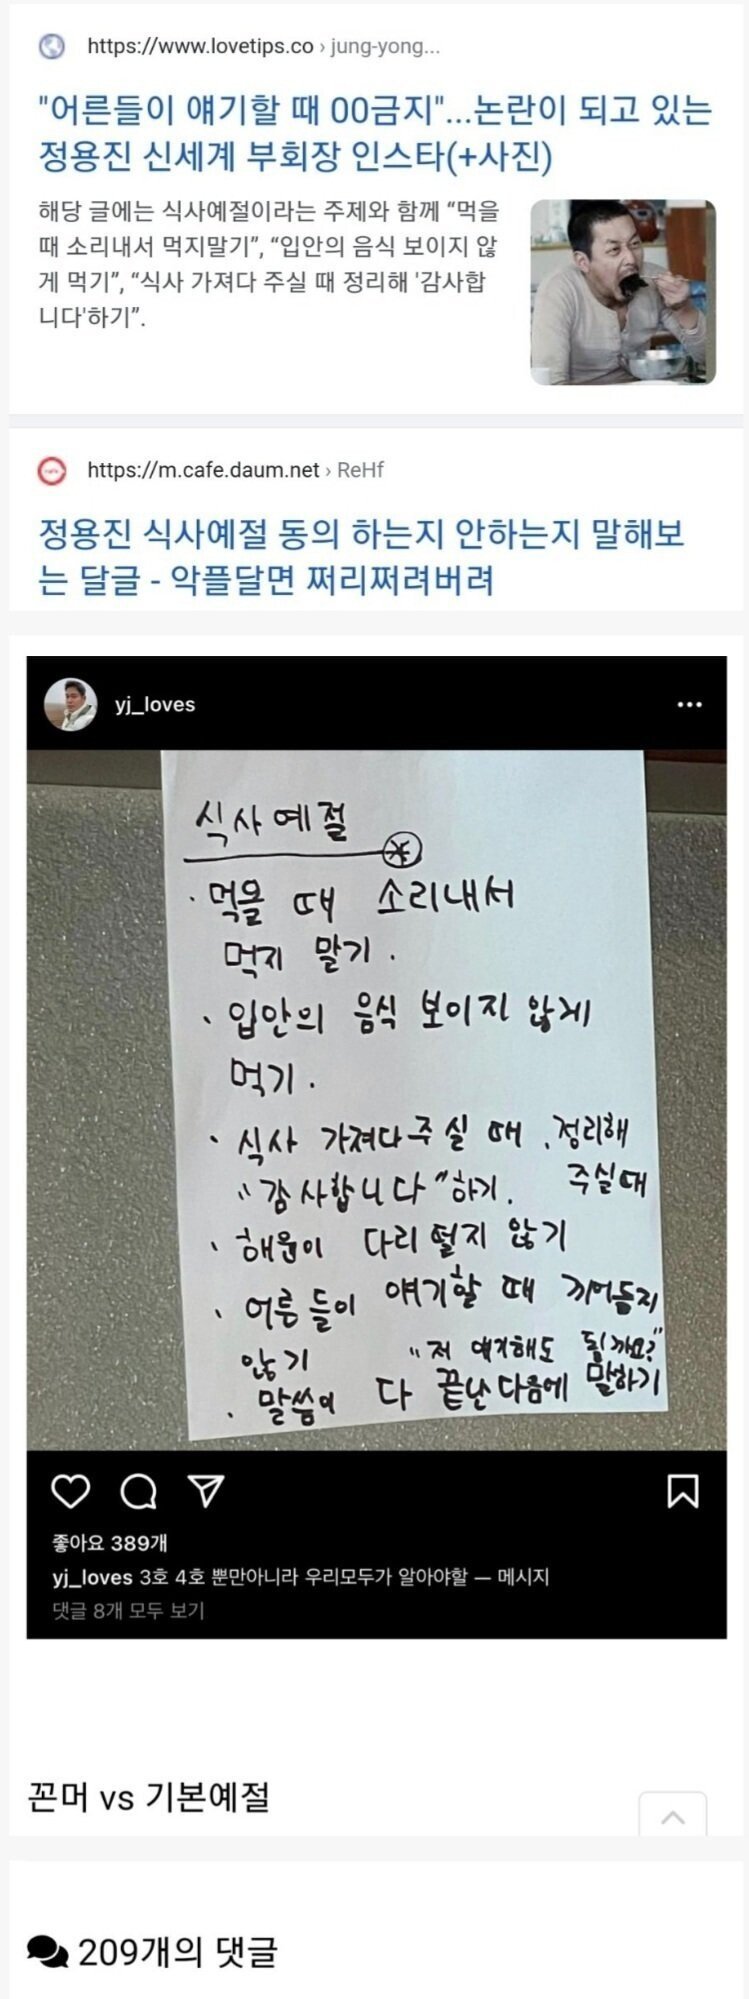 https://www.lovetips.co › jung-yong...
"어른들이 얘기할 때 00금지"...논란이 되고 있는
정용진 신세계 부회장 인스타(+사진)
해당 글에는 식사예절이라는 주제와 함께 “먹을
때 소리내서 먹지말기”, “입안의 음식 보이지 않
게 먹기”, “식사 가져다 주실 때 정리해 '감사합
니다'하기”.
https://m.cafe.daum.net › ReHf
정용진 식사예절 동의 하는지 안하는지 말해보
는 달글 - 악플달면 쩌리쩌려버려
yj_loves
식사예절
· 먹을 때 소리내서
먹지 말기.
· 입안의 음식 보이지 않게
먹기.
· 식사 가져다주실 때, 정리해
주실때
"감사합니다"하기.
· 해윤이 다리 떨지 않기
· 어른들이 얘기할 때 끼어들지
않기 "저 얘기해도 될까요?"
· 말씀이 다 끝난 다음에 말하기
좋아요 389개
yj_loves 3호 4호 뿐만아니라 우리모두가 알아야할 — 메시지
댓글 8개 모두 보기
꼰머 vs 기본예절
209개의 댓글